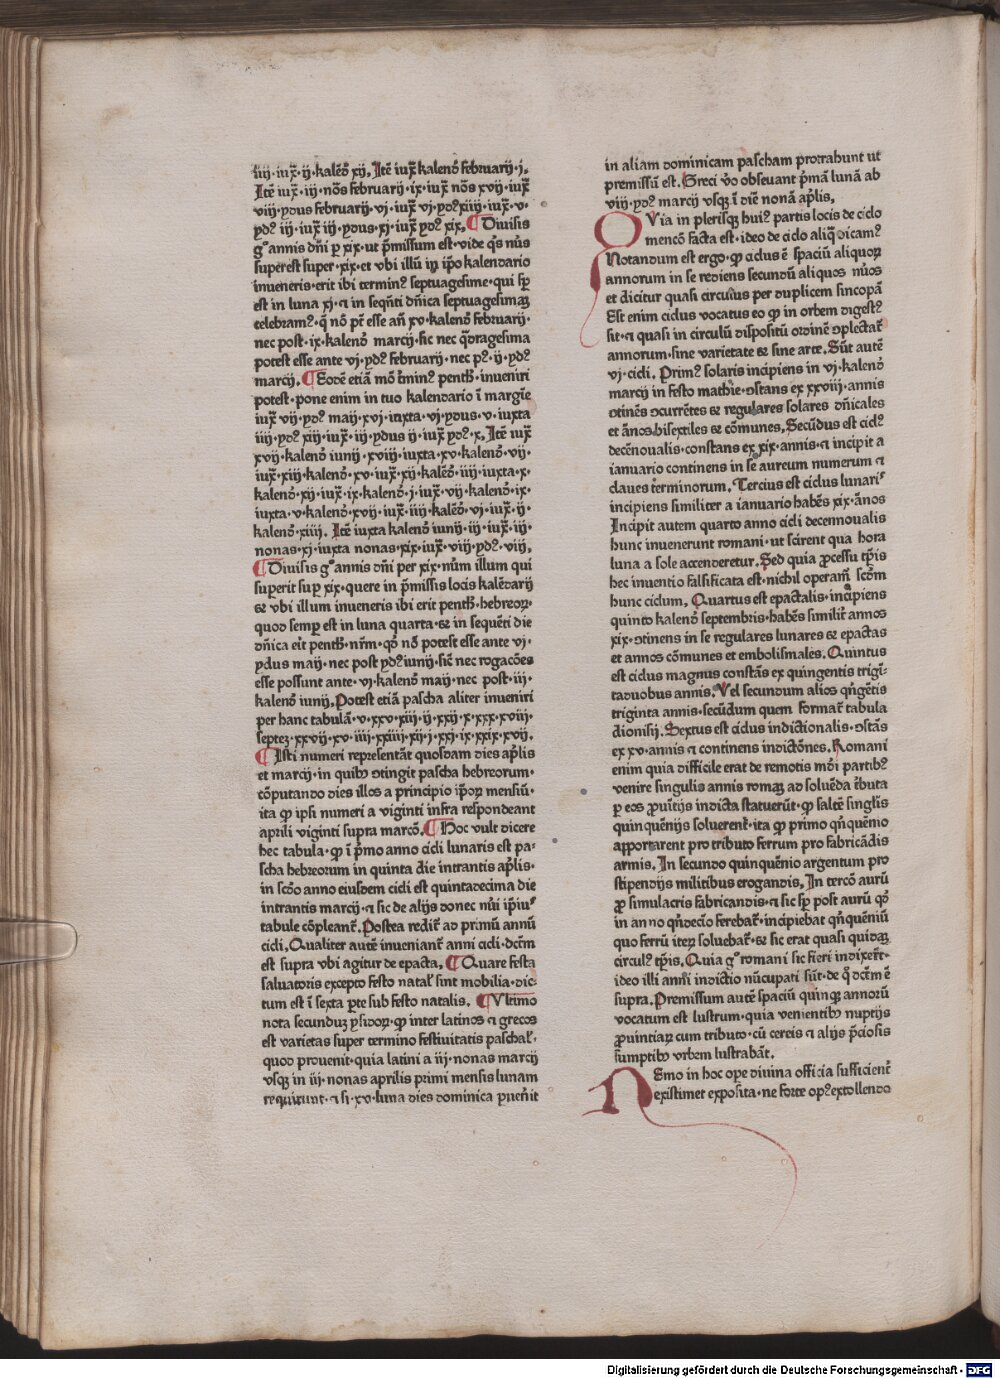 iiij·iux̄·ij·kalēd̄ xij. Itē iux̄ kalend̄ februarij·j.
Itē iux̄·iij·nōs februarij·ix·iux̄ nōs xvij·iux̄
viij·ydus februarij·vj·iux̄ vj·yd᷒ xiiij·iux̄·v·
yd᷒ iij·iux̄ iij·ydus·xj·iux̄ yd᷒ xix. ¶ Diuisis
gͦ annis dn̄i p̲ xix·ut p̄missum est·vide qͥs nūs
superest super·xix·et vbi illū in ip̄o kalendario
inueneris·erit ibi termin᷒ septuagesime·qui sp̲
est in luna xj·⁊ in seqn̄ti dn̄ica septuagesimaꝫ
celebram᷒·q̄ nō pt̄ esse an̄ xv·kalend̄ februarij·
nec post·ix·kalend̄ marcij·sic nec q̄dragesima
potest esse ante vj·yd᷒ february·nec p᷒·ij·yd᷒
marcij. ¶ Eodē etiā mō t̄min᷒ penth̄·inueniri
potest·pone enim in tuo kalendario ī margīe
iux̄ vij·yd᷒ maij·xvj·iuxta·vj·ydus·v·iuxta
iiij·yd᷒ xiij·iux̄·iij·ydus ij·iux̄ yd᷒·x. Itē iux̄
xvij·kalend̄ iunij·xviij·iuxta·xv·kalend̄·vij·
iux̄·xiij·kalend̄·xv·iux̄·xij·kalēd̄·iiij·iuxta·x·
kalend̄·xij·iux̄·ix·kalend̄·j·iux̄·vij·kalend̄·ix·
iuxta·v·kalend̄·xvij·iux̄·iiij·kalēd̄·vj·iux̄·ij·
kalend̄·xiiij. Itē iuxta kalend̄ iunij·iij·iux̄·iij·
nonas·xj·iuxta nonas·xix·iux̄·viij·yd᷒·viij.
¶ Diuisis gͦ annis dn̄i per xix·nūm illum qui
superit sup̲ xix·quere in p̄missis locis kalēdarij
⁊ vbi illum inueneris ibi erit penth̄·hebreoꝝ·
quod semp̲ est in luna quarta·⁊ in sequēti die
dn̄ica erit penth̄·nr̄m·qd̄ nō potest esse ante vj·
ydus maij·nec post yd᷒ iunij·sic̄ nec rogacōes
esse possunt ante·vj·kalend̄ maij·nec post·iij·
kalend̄ iunij. Potest etiā pascha aliter inueniri
per hanc tabulā·v·xxv·xiij·ij·xxij·x·xxx·xviij·
septeꝫ·xxvij·xv·iiij·xxiiij·xij·j·xxj·ix·xxix·xvij.
¶ Isti numeri representāt quosdam dies ap̄lis
et marcij·in quibꝰ ↄtingit pascha hebreorum·
cōputando dies illos a principio ip̄oꝝ mensiū·
ita ꝙ ipsi numeri a viginti infra respondeant
aprili viginti supra marcō. ¶ Hoc vult dicere
hec tabula·ꝙ ī p̄mo anno cicli lunaris est pa⸗
scha hebreorum in quinta die intrantis ap̄lis·
in scd̄o anno eiusdem cicli est quintadecima die
intrantis marcij·⁊ sic de alijs donec nūi ip̄ius
tabule cōpleant᷑. Postea redit᷑ ad primū annū
cicli. Qualiter autē inueniant᷑ anni cicli·dc̄m
est supra vbi agitur de epacta. ¶ Quare festa
saluatoris excepto festo natal᷑ sint mobilia·dic⸗
tum est ī sexta p̱te sub festo natalis. ¶ Vltimo
nota secunduꝫ ysidoꝝ·ꝙ inter latinos ⁊ grecos
est varietas super termino festiuitatis paschal᷑·
quod prouenit·quia latini a iij·nonas marcij
vsqꝫ in iij·nonas aprilis primi mensis lunam
requirunt·⁊ si·xv·luna dies dominica puen̄it
in aliam dominicam pascham protrahunt ut
premissū est. Greci v̄o obseuant p̄mā lunā ab
viij·yd᷒ marcij vsqꝫ ī diē nonā ap̄lis.
QVia in plerisqꝫ hui᷒ partis locis de ciclo
mencō facta est·ideo de ciclo aliq̄ dicam᷒
Notandum est ergo·ꝙ ciclus ē spaciū aliquoꝝ
annorum in se rediens secundū aliquos nūos
et dicitur quasi circulus per duplicem sincopā
Est enim ciclus vocatus eo ꝙ in orbem digest᷒
sit·⁊ quasi in circulū dispositū ordinē ↄplectat᷑
annorum·sine varietate ⁊ sine arte. Sūt autē
vj·cicli. Prim᷒ solaris incipiens in vj·kalend̄
marcij in festo mathie·ↄstans ex xxviij·annis
ↄtinēs ↄcurrētes ⁊ regulares solares dn̄icales
et ānos bisextiles ⁊ cōmunes. Secūdus est cicl᷒
decēnoualis·constans ex xix·annis·⁊ incipit a
ianuario continens in se aureum numerum ⁊
claues t̄minorum. Tercius est ciclus lunaris
incipiens similiter a ianuario habēs xix·ānos
Incipit autem quarto anno cicli decennoualis
hunc inuenerunt romani·ut scirent qua hora
luna a sole accenderetur. Sed quia p̱cessu tp̄is
hec inuentio falsificata est·nichil operam̄ scd̄m
hunc ciclum. Quartus est epactalis·incipiens
quinto kalend̄ septembris·habēs similit᷑ annos
xix·ↄtinens in se regulares lunares ⁊ epactas
et annos cōmunes et embolismales. Quintus
est ciclus magnus constās ex quingentis trigī⸗
taduobus annis. Vel secundum alios qn̄gētis
triginta annis·secūdum quem format᷑ tabula
dionisij. Sextus est ciclus indictionalis·ↄstās
ex xv·annis ⁊ continens indictōnes. Romani
enim quia difficile erat de remotis mūdi partibꝰ
venire singulis annis romaꝫ ad soluēda t̄buta
p̲ eos p̱uītijs indicta statuerūt·ꝙ saltē singlis
quinquēnijs soluerent᷑·ita ꝙ primo qn̄quēnio
apportarent pro tributo ferrum pro fabricādis
armis. In secundo quinquēnio argentum pro
stipendijs militibus erogandis. In tercō aurū
p̱ simulacris fabricandis·⁊ sic sp̲ post aurū qd̄
in anno qn̄decīo ferebat᷑·incipiebat qn̄quēniū
quo ferrū iteꝝ soluebat᷑·⁊ sic erat quasi quidaꝫ
circul᷒ tp̄is. Quia gͦ romani sic fieri indixer̄t·
ideo illi anni indictio nūcupati sūt·de q̄ dc̄m ē
supra. Premissum autē spaciū quinqꝫ annorū
vocatum est lustrum·quia venientibꝰ nuptijs
p̱uintiaꝝ cum tributo·cū cereis ⁊ alijs p̄ciosis
sumptibꝰ vrbem lustrabāt.
NEmo in hoc ope diuina officia sufficient᷑
existimet exposita·ne forte op᷒ extollendo
Digitalisierung gefördert durch die Deutsche Forschungsgemeinschaft - DFG